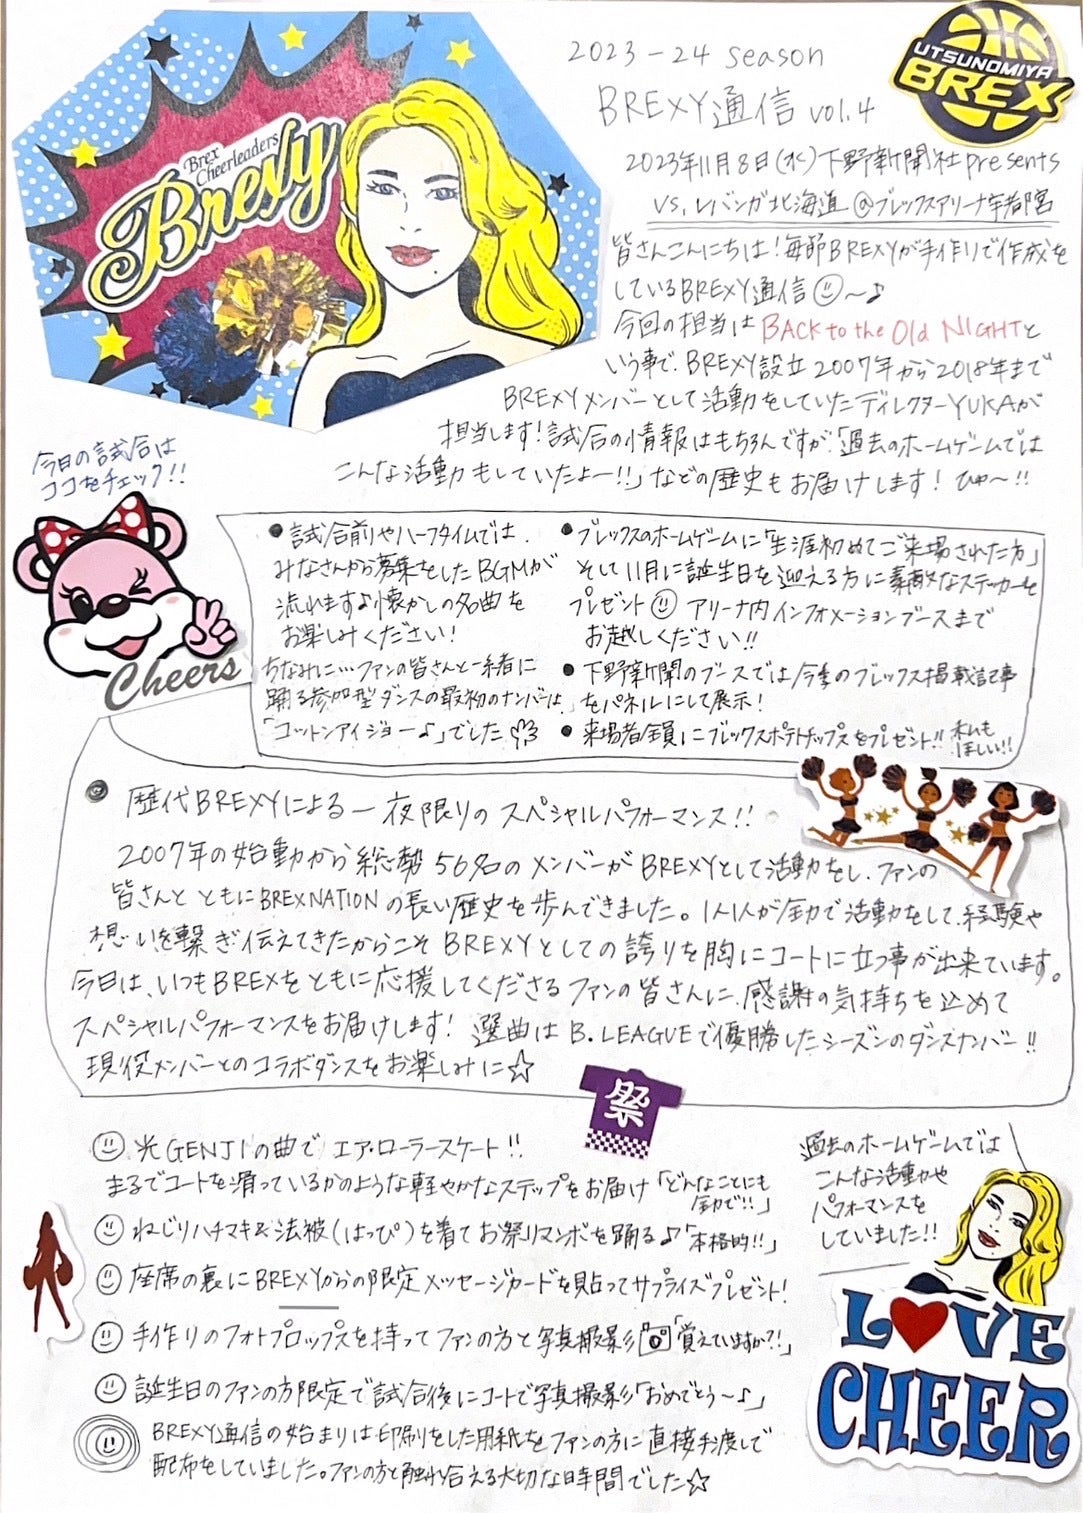 2023-24 season
BREXY通信 vol.4
UTSUNOMIYA
BREX
Brex
Cheerleaders
Brexy
2023年11月8日(水)下野新聞社presents
vs.レバンガ北海道@ブレックスアリーナ宇都宮
皆さんこんにちは!毎節BREXYが手作りで作成を
しているBREXY通信☺〜♪
今回の担当はBACK to the Old NIGHTと
いう事で、BREXY設立2007年から2018年まで
BREXYメンバーとして活動をしていたディレクターYUKAが
担当します!試合の情報はもちろんですが「過去のホームゲームでは
こんな活動もしていたよー!!」などの歴史もお届けします! ひゅ〜!!
今日の試合は
ココをチェック!!
Cheers
●試合前やハーフタイムでは、
みなさんから募集をしたBGMが
流れます♪懐かしの名曲を
お楽しみください!
ちなみに…ファンの皆さんと一緒に
踊る参加型ダンスの最初のナンバーは、
「コットンアイジョー♪」でした
●ブレックスのホームゲームに「生涯初めてご来場された方」
そして11月に誕生日を迎える方に素敵なステッカーを
プレゼント☺ アリーナ内インフォメーションブースまで
お越しください!!
●下野新聞のブースでは今季のブレックス掲載記事
をパネルにして展示!
●来場者全員にブレックスポテトチップスをプレゼント!! 私も
ほしい!!
●歴代BREXYによる一夜限りのスペシャルパフォーマンス!!
2007年の始動から総勢56名のメンバーがBREXYとして活動をし、ファンの
皆さんとともにBREXNATIONの長い歴史を歩んできました。1人1人が全力で活動をして、経験や
想いを繋ぎ伝えてきたからこそBREXYとしての誇りを胸にコートに立つ事が出来ています。
今日は、いつもBREXをともに応援してくださるファンの皆さんに、感謝の気持ちを込めて
スペシャルパフォーマンスをお届けします! 選曲はB.LEAGUEで優勝したシーズンのダンスナンバー!!
現役メンバーとのコラボダンスをお楽しみに☆
祭
過去のホームゲームでは
こんな活動や
パフォーマンスを
していました!!
☺光GENJIの曲でエア・ローラースケート!!
まるでコートを滑っているかのような軽やかなステップをお届け「どんなことにも
全力で!!」
☺ねじりハチマキ&法被(はっぴ)を着てお祭りマンボを踊る♪「本格的!!」
☺座席の裏にBREXYからの限定メッセージカードを貼ってサプライズプレゼント!
☺手作りのフォトプロップスを持ってファンの方と写真撮影「覚えていますか?!」
☺誕生日のファンの方限定で試合後にコートで写真撮影「おめでとう〜♪」
☺BREXY通信の始まりは印刷をした用紙をファンの方に直接手渡しで
配布をしていました。ファンの方と触れ合える大切な時間でした☆
LOVE
CHEER